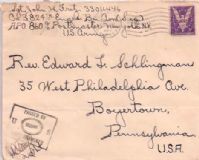 Sgt. John H. Fritz 33011446
APO 860 Postmaster, New York, N.Y.
U.S. Army
Rev. Edward L. Schlingman
35 West Philadelphia Ave.
Boyertown,
Pennsylvania
U.S.A.
PASSED BY